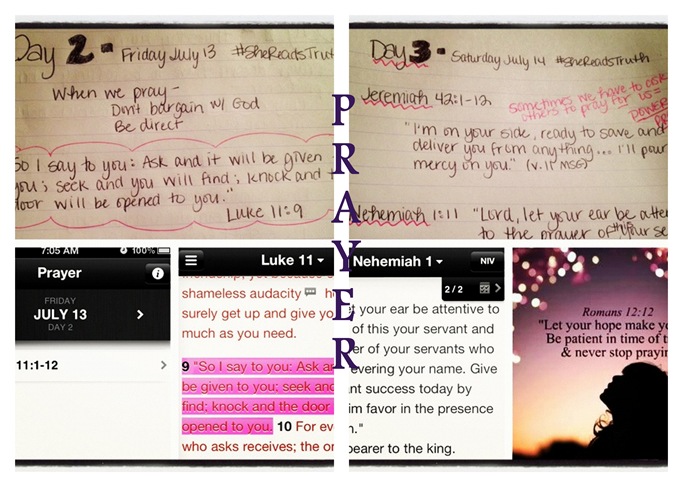 Day 2 - Friday July 13 #SheReadsTruth
When we pray -
Don't bargain w/ God
Be direct
So I say to you: Ask and it will be given
you; seek and you will find; knock and t
door will be opened to you."
Luke 11:9
Day 3 - Saturday July 14 #SheReadsTruth
Jeremiah 42:1-12
sometimes we have to ask
others to pray for us =
POWER
"I'm on your side, ready to save and
deliver you from anything... I'll pour
mercy on you." (v.11 MSG)
Nehemiah 1:11 "Lord, let your ear be atte
to the prayer of this, your se
PRAYER
7:05 AM 100%
Prayer
FRIDAY
JULY 13
DAY 2
11:1-12
Luke 11
friendship, yet because o
shameless audacity h
surely get up and give yo
much as you need.
9 "So I say to you: Ask an
be given to you; seek and
find; knock and the door
opened to you. 10 For ev
who asks receives; the on
Nehemiah 1 NIV
2/2
t your ear be attentive to
of this your servant and
er of your servants who
evering your name. Give
nt success today by
im favor in the presence
n."
bearer to the king.
Romans 12:12
"Let your hope make yo
Be patient in time of t
& never stop prayin